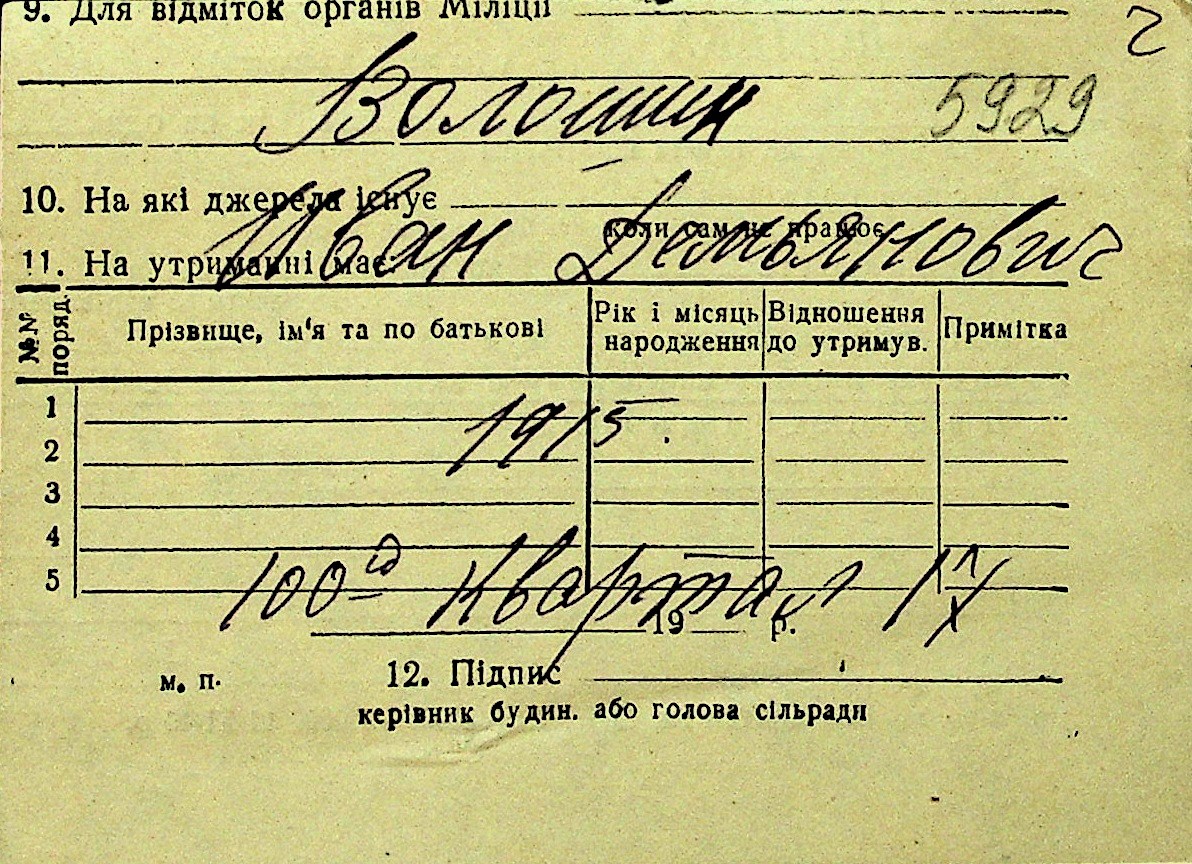 9. Для відміток органів Міліції
2
Волошин 5929
10. На які джерела існує
коли сам не працює
Иван Демьянович
11. На утриманні має:
№№ поряд. Прізвище, ім'я та по батькові Рік і місяць народження Відношення до утримув. Примітка
1
1915.
2
3
4
5
100й квартал
19 р.
м. п. 12. Підпис
керівник будин. або голова сільради